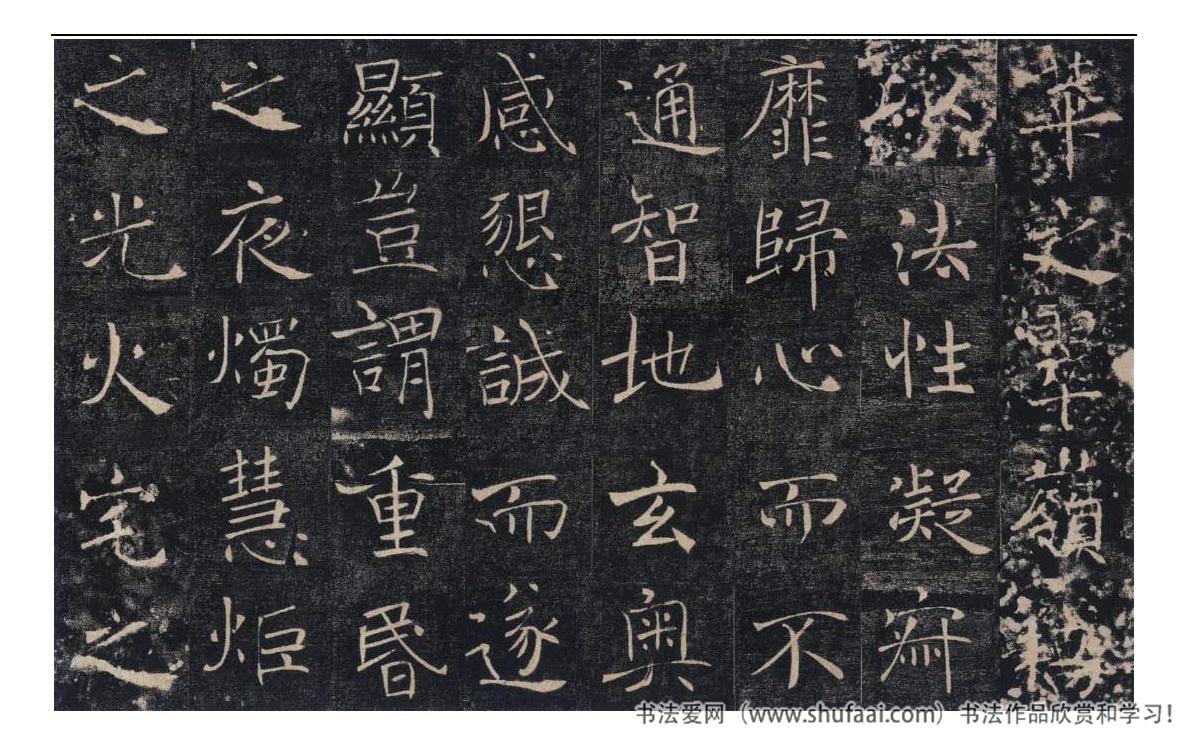 華
法性凝寂
靡歸心而不
通智地玄奧
感懇誠而遂
顯豈謂重昏
之夜燭慧炬
之光火宅之
书法爱网（www.shufaai.com）书法作品欣赏和学习！